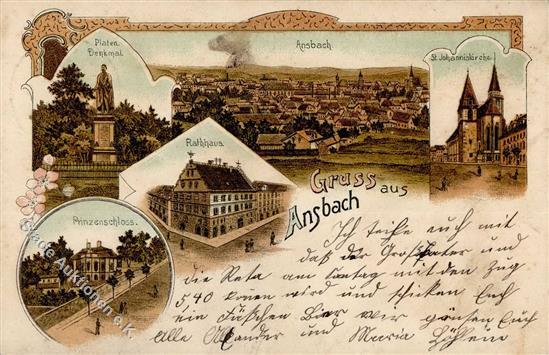 Platen
Denkmal.
Ansbach.
St. Johanniskirche.
Rathhaus.
Gruss aus
Ansbach
Prinzenschloss.
Ich teihe euch mit
daß der Großvater und
die Reta am Sontag mit den Zug
5 40 könen wird und schicken Euch
ein Fäßchen Bier wir grüßen Euch
Alle und Maria
Stade Auktionen e.K.